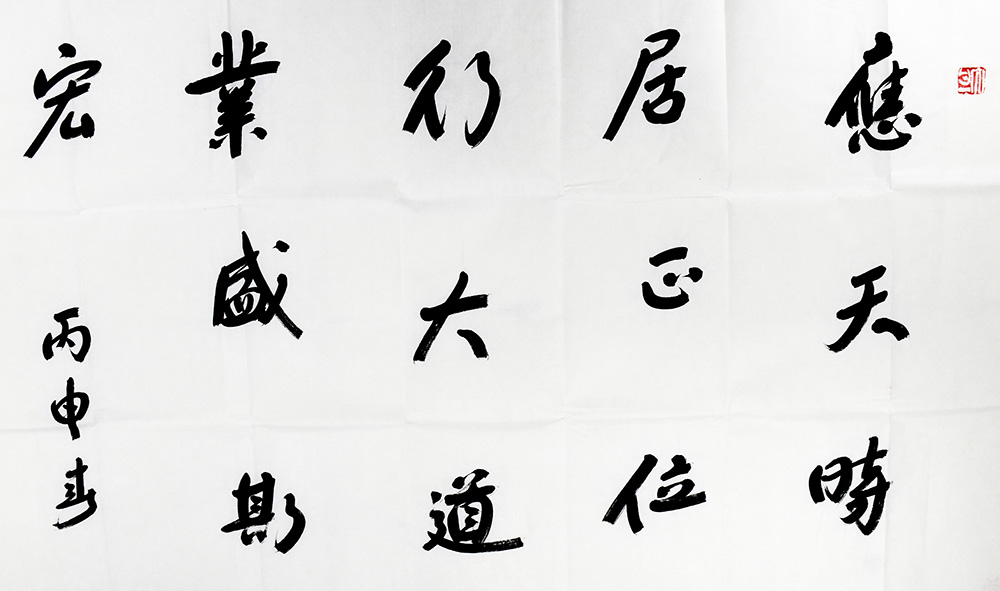 應天時
居正位
行大道
業盛斯
宏
丙申春